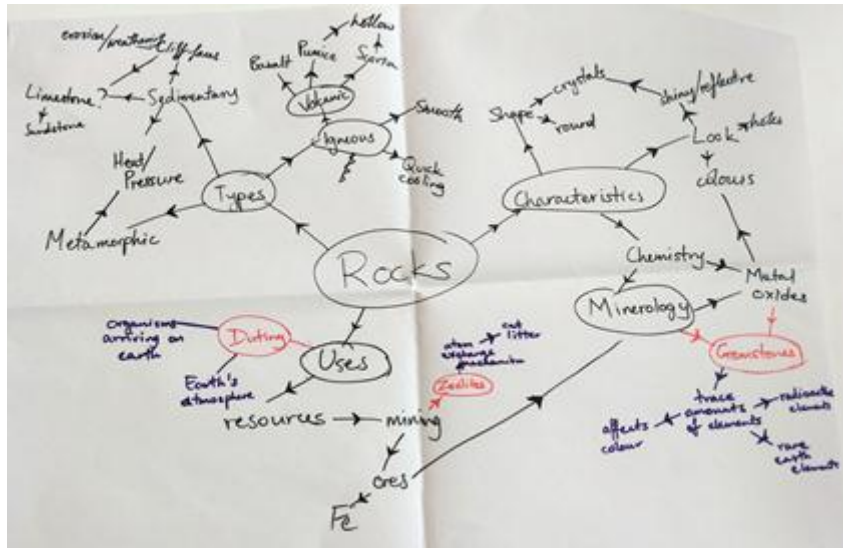 erosion/weathering
Cliff faces
Limestone?
Sandstone
Sedimentary
Heat/
Pressure
Metamorphic
Types
Basalt
Pumice
hollow
Volcanic
Igneous
Smooth
Quick
cooling
Rocks
Characteristics
Shape
crystals
round
shiny/reflective
Look
holes
colours
Chemistry
Minerology
Metal
oxides
Gemstones
trace
amounts
of elements
affects
colour
radioactive
elements
rare
earth
elements
Uses
Dating
organisms
arriving on
earth
Earth's
atmosphere
resources
mining
Zeolites
atom
exchange
mechanism
cat
litter
ores
Fe